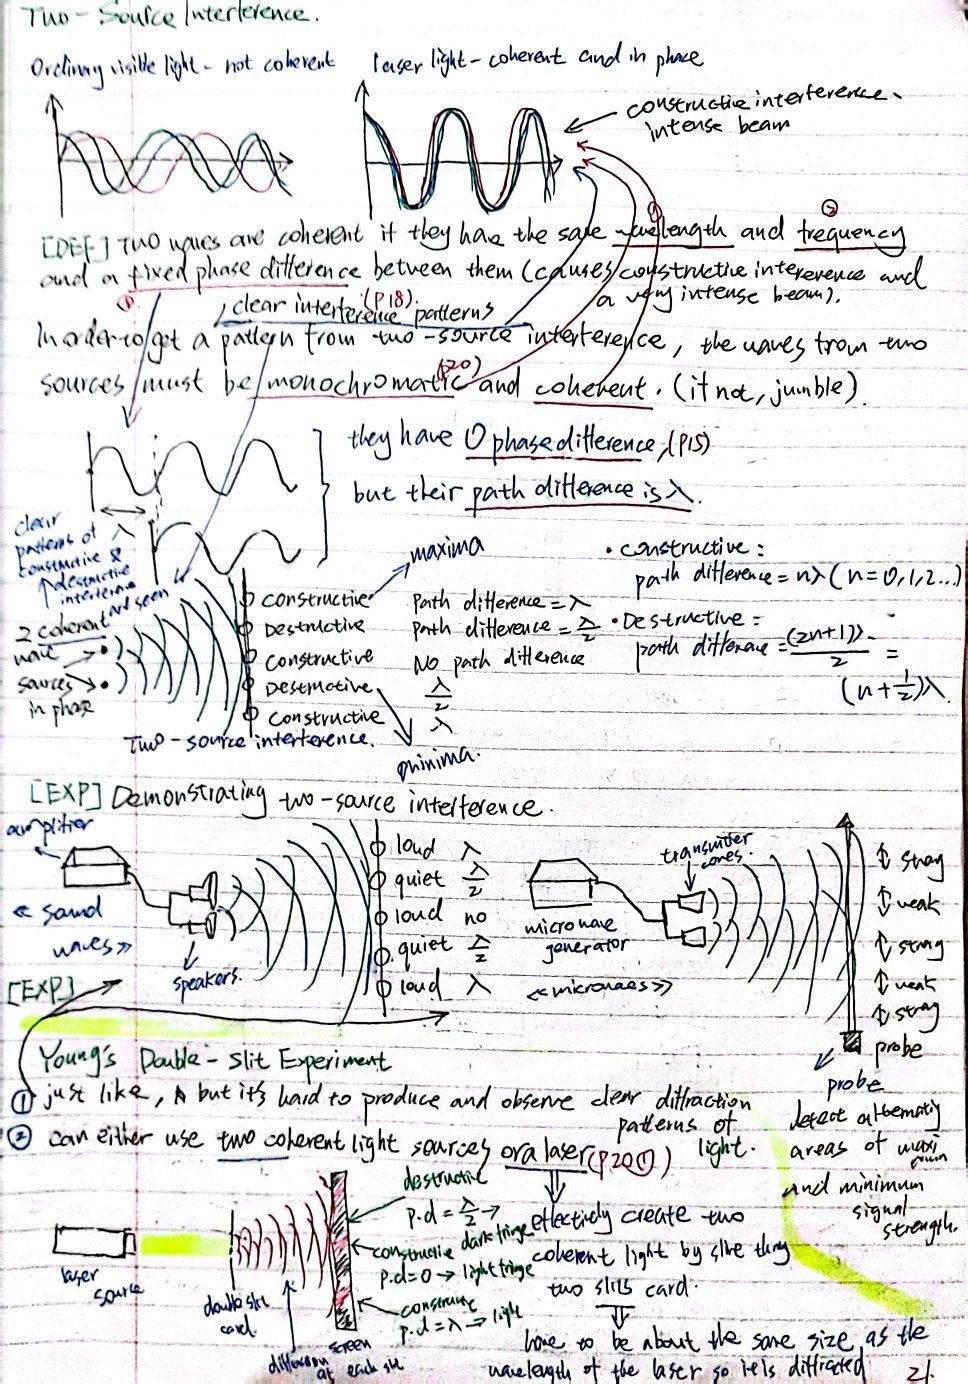 Two-Source Interference.
Ordinary visible light - not coherent
laser light - coherent and in phase
constructive interference.
intense beam
[DEF] Two waves are coherent if they have the same wavelength and frequency
and a fixed phase difference between them (causes constructive intereverence and
a very intense beam).
clear interference patterns
(P18)
In order to get a pattern from two-source interference, the waves from two
sources must be monochromatic and coherent. (if not, jumble)
(P20)
they have 0 phase difference, (P15)
but their path difference is λ.
λ
clear
patterns of
constructive &
destructive
interference
are seen
2 coherent
wave
sources
in phase
maxima
constructive Path difference = λ
Destructive Path difference = λ/2
constructive No path difference
Destructive λ/2
constructive λ
minima.
Two-source interference.
• constructive:
path difference = nλ (n=0,1,2...)
• Destructive:
path difference = (2n+1)λ/2 =
(n+1/2)λ
[EXP] Demonstrating two-source interference.
amplifier
<< sound
waves >>
speakers.
loud λ
quiet λ/2
loud no
quiet λ/2
loud λ
microwave
generator
transmitter
cones.
<<microwaves>>
strong
weak
strong
weak
strong
probe
probe
detect alternating
areas of maximum
and minimum
signal
strength.
[EXP]
Young's Double-Slit Experiment
① just like, ^ but it's hard to produce and observe clear diffraction
patterns of
light.
② can either use two coherent light sources or a laser (P20①)
effectively create two
coherent light by shine through
two slits card.
have to be about the same size as the
wavelength of the laser so it is diffracted
laser
source
double slit
card
diffraction
at each slit
screen
destructive
p.d = λ/2 →
dark fringe
constructive
p.d = 0 → light fringe
constructive
p.d = λ → light
21.